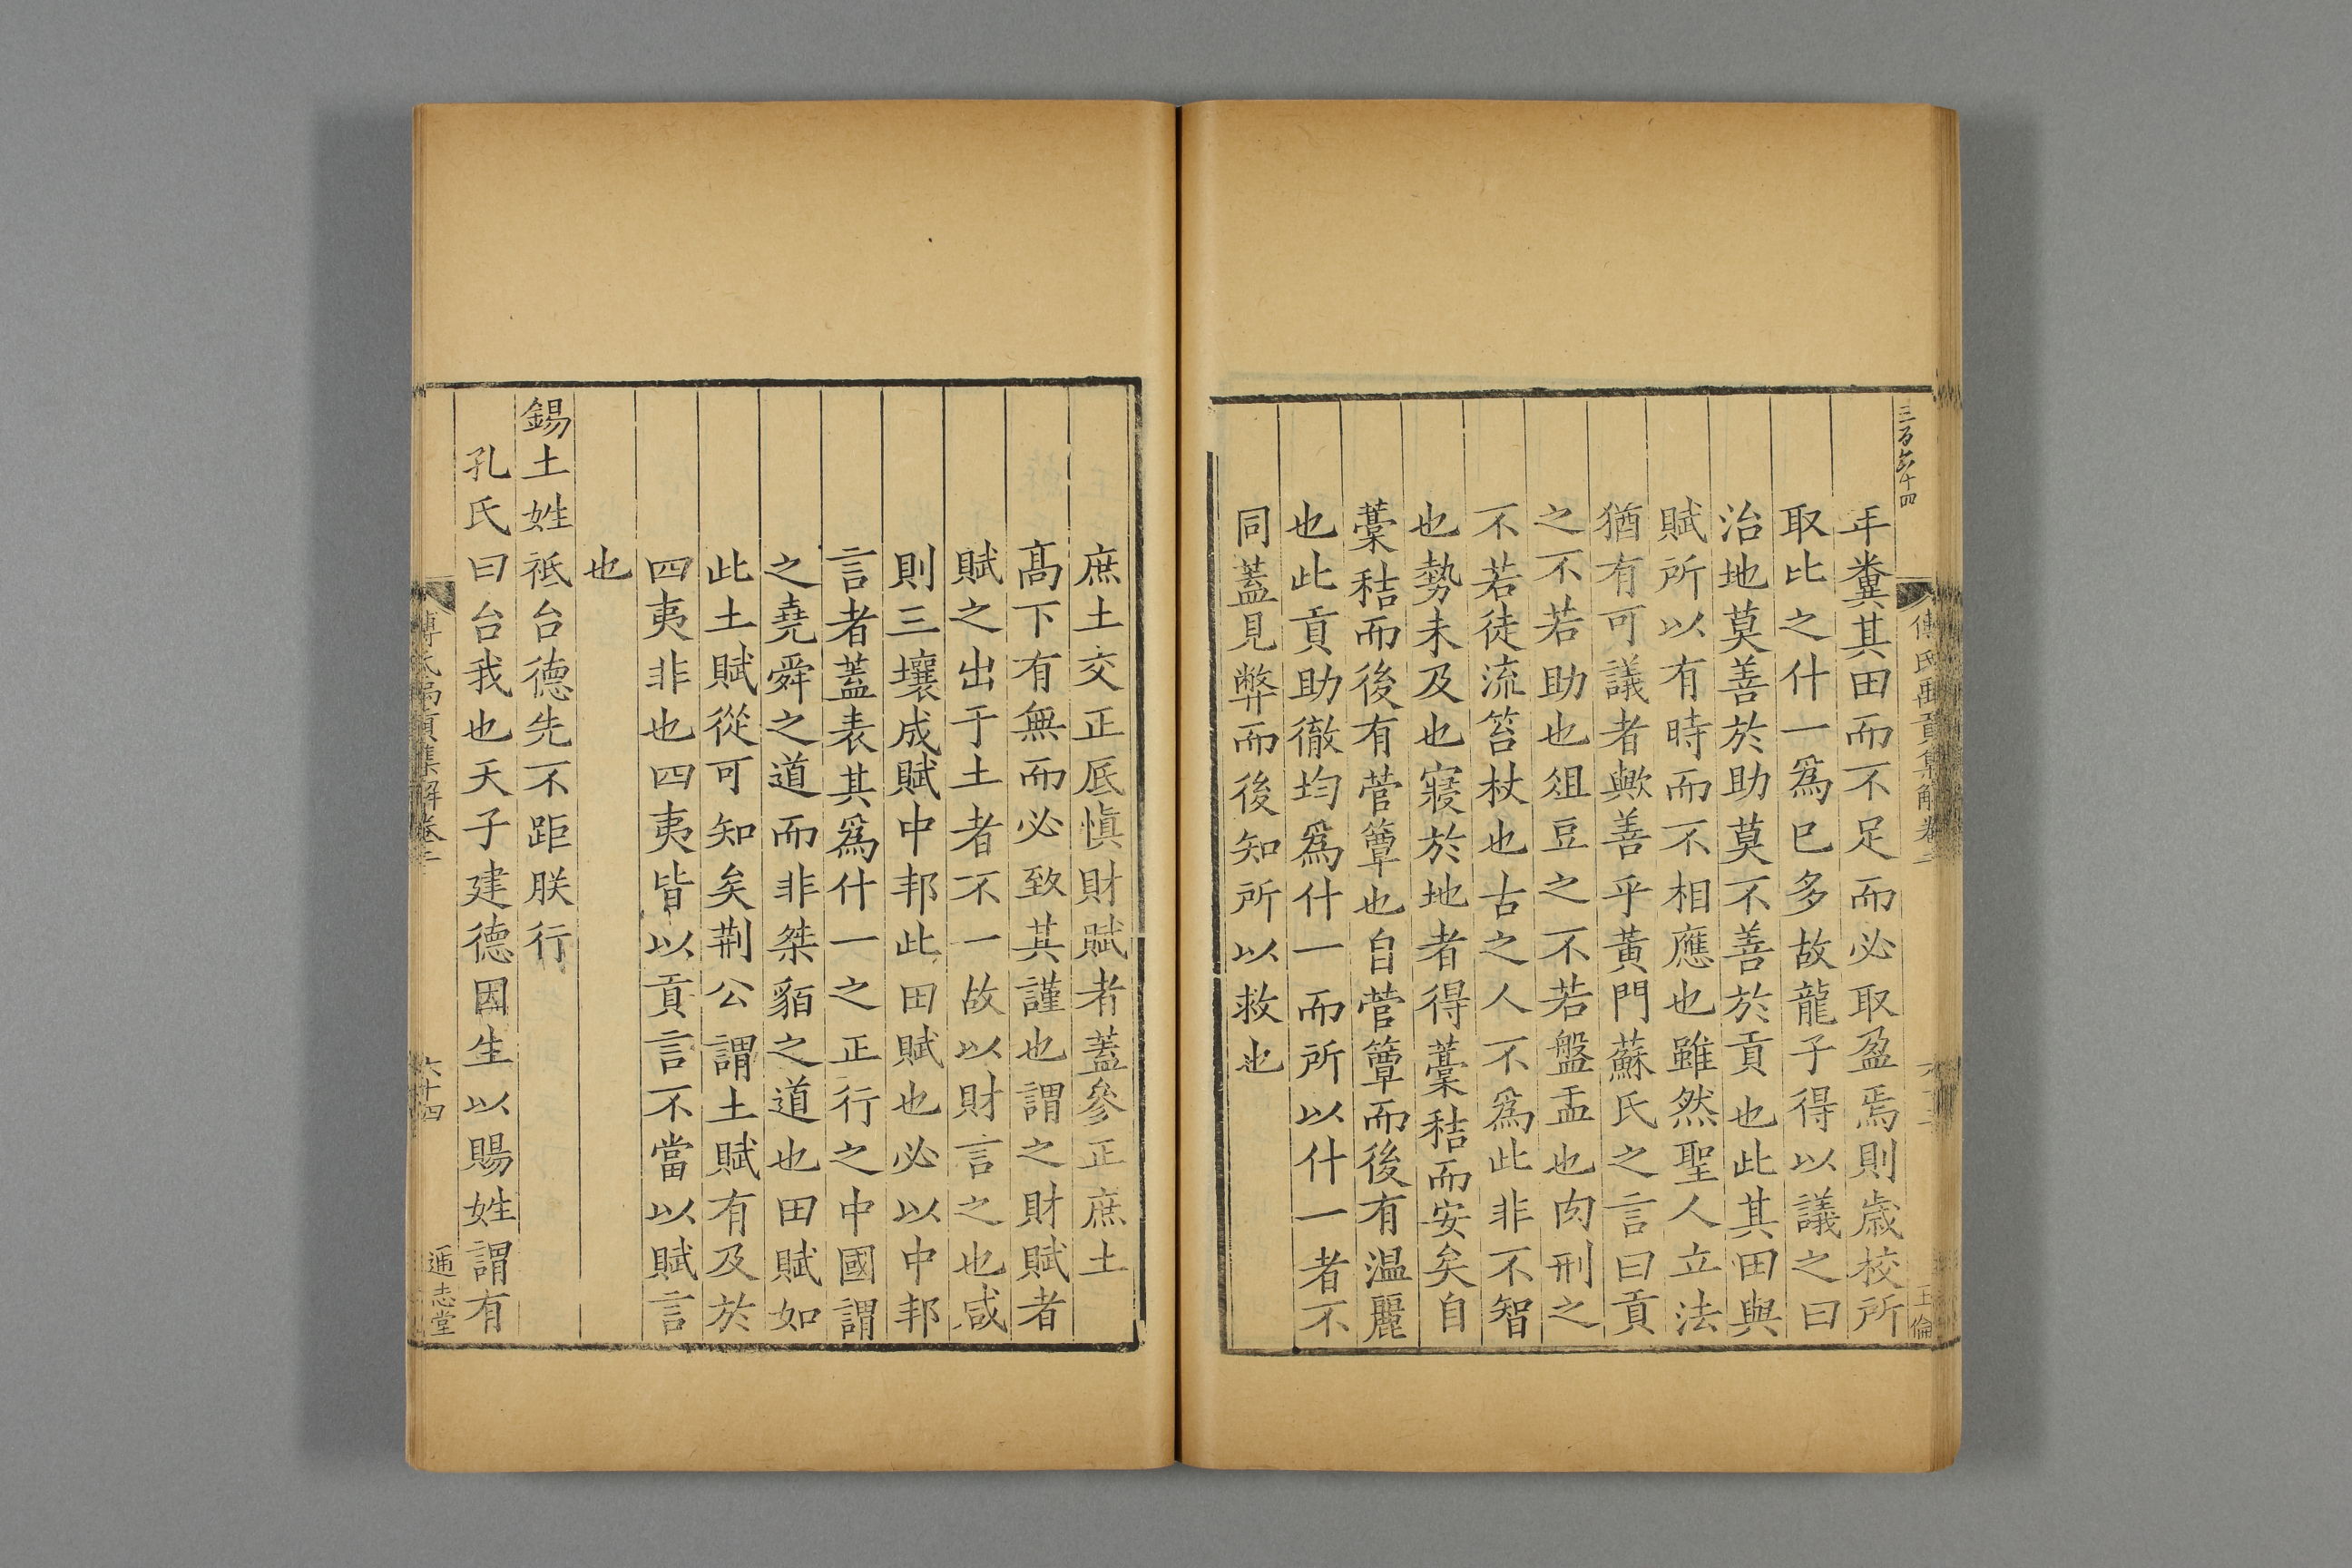 三百六十四
傳氏禹貢集解卷二
王倫
年糞其田而不足而必取盈焉則歲校所
取比之什一爲已多故龍子得以議之曰
治地莫善於助莫不善於貢也此其田與
賦所以有時而不相應也雖然聖人立法
猶有可議者歟善乎黃門蘇氏之言曰貢
之不若助也俎豆之不若盤盂也肉刑之
不若徒流笞杖也古之人不爲此非不智
也勢未及也寢於地者得藁秸而安矣自
藁秸而後有菅簟也自菅簟而後有温麗
也此貢助徹均爲什一而所以什一者不
同蓋見弊而後知所以救也
庶土交正厎慎財賦者蓋參正庶土
髙下有無而必致其謹也謂之財賦者
賦之出于土者不一故以財言之也咸
則三壤成賦中邦此田賦也必以中邦
言者蓋表其爲什一之正行之中國謂
之堯舜之道而非桀貊之道也田賦如
此土賦從可知矣荆公謂土賦有及於
四夷非也四夷皆以貢言不當以賦言
也
錫土姓祗台德先不距朕行
孔氏曰台我也天子建德因生以賜姓謂有
傳氏禹貢集解卷二
六十四
通志堂